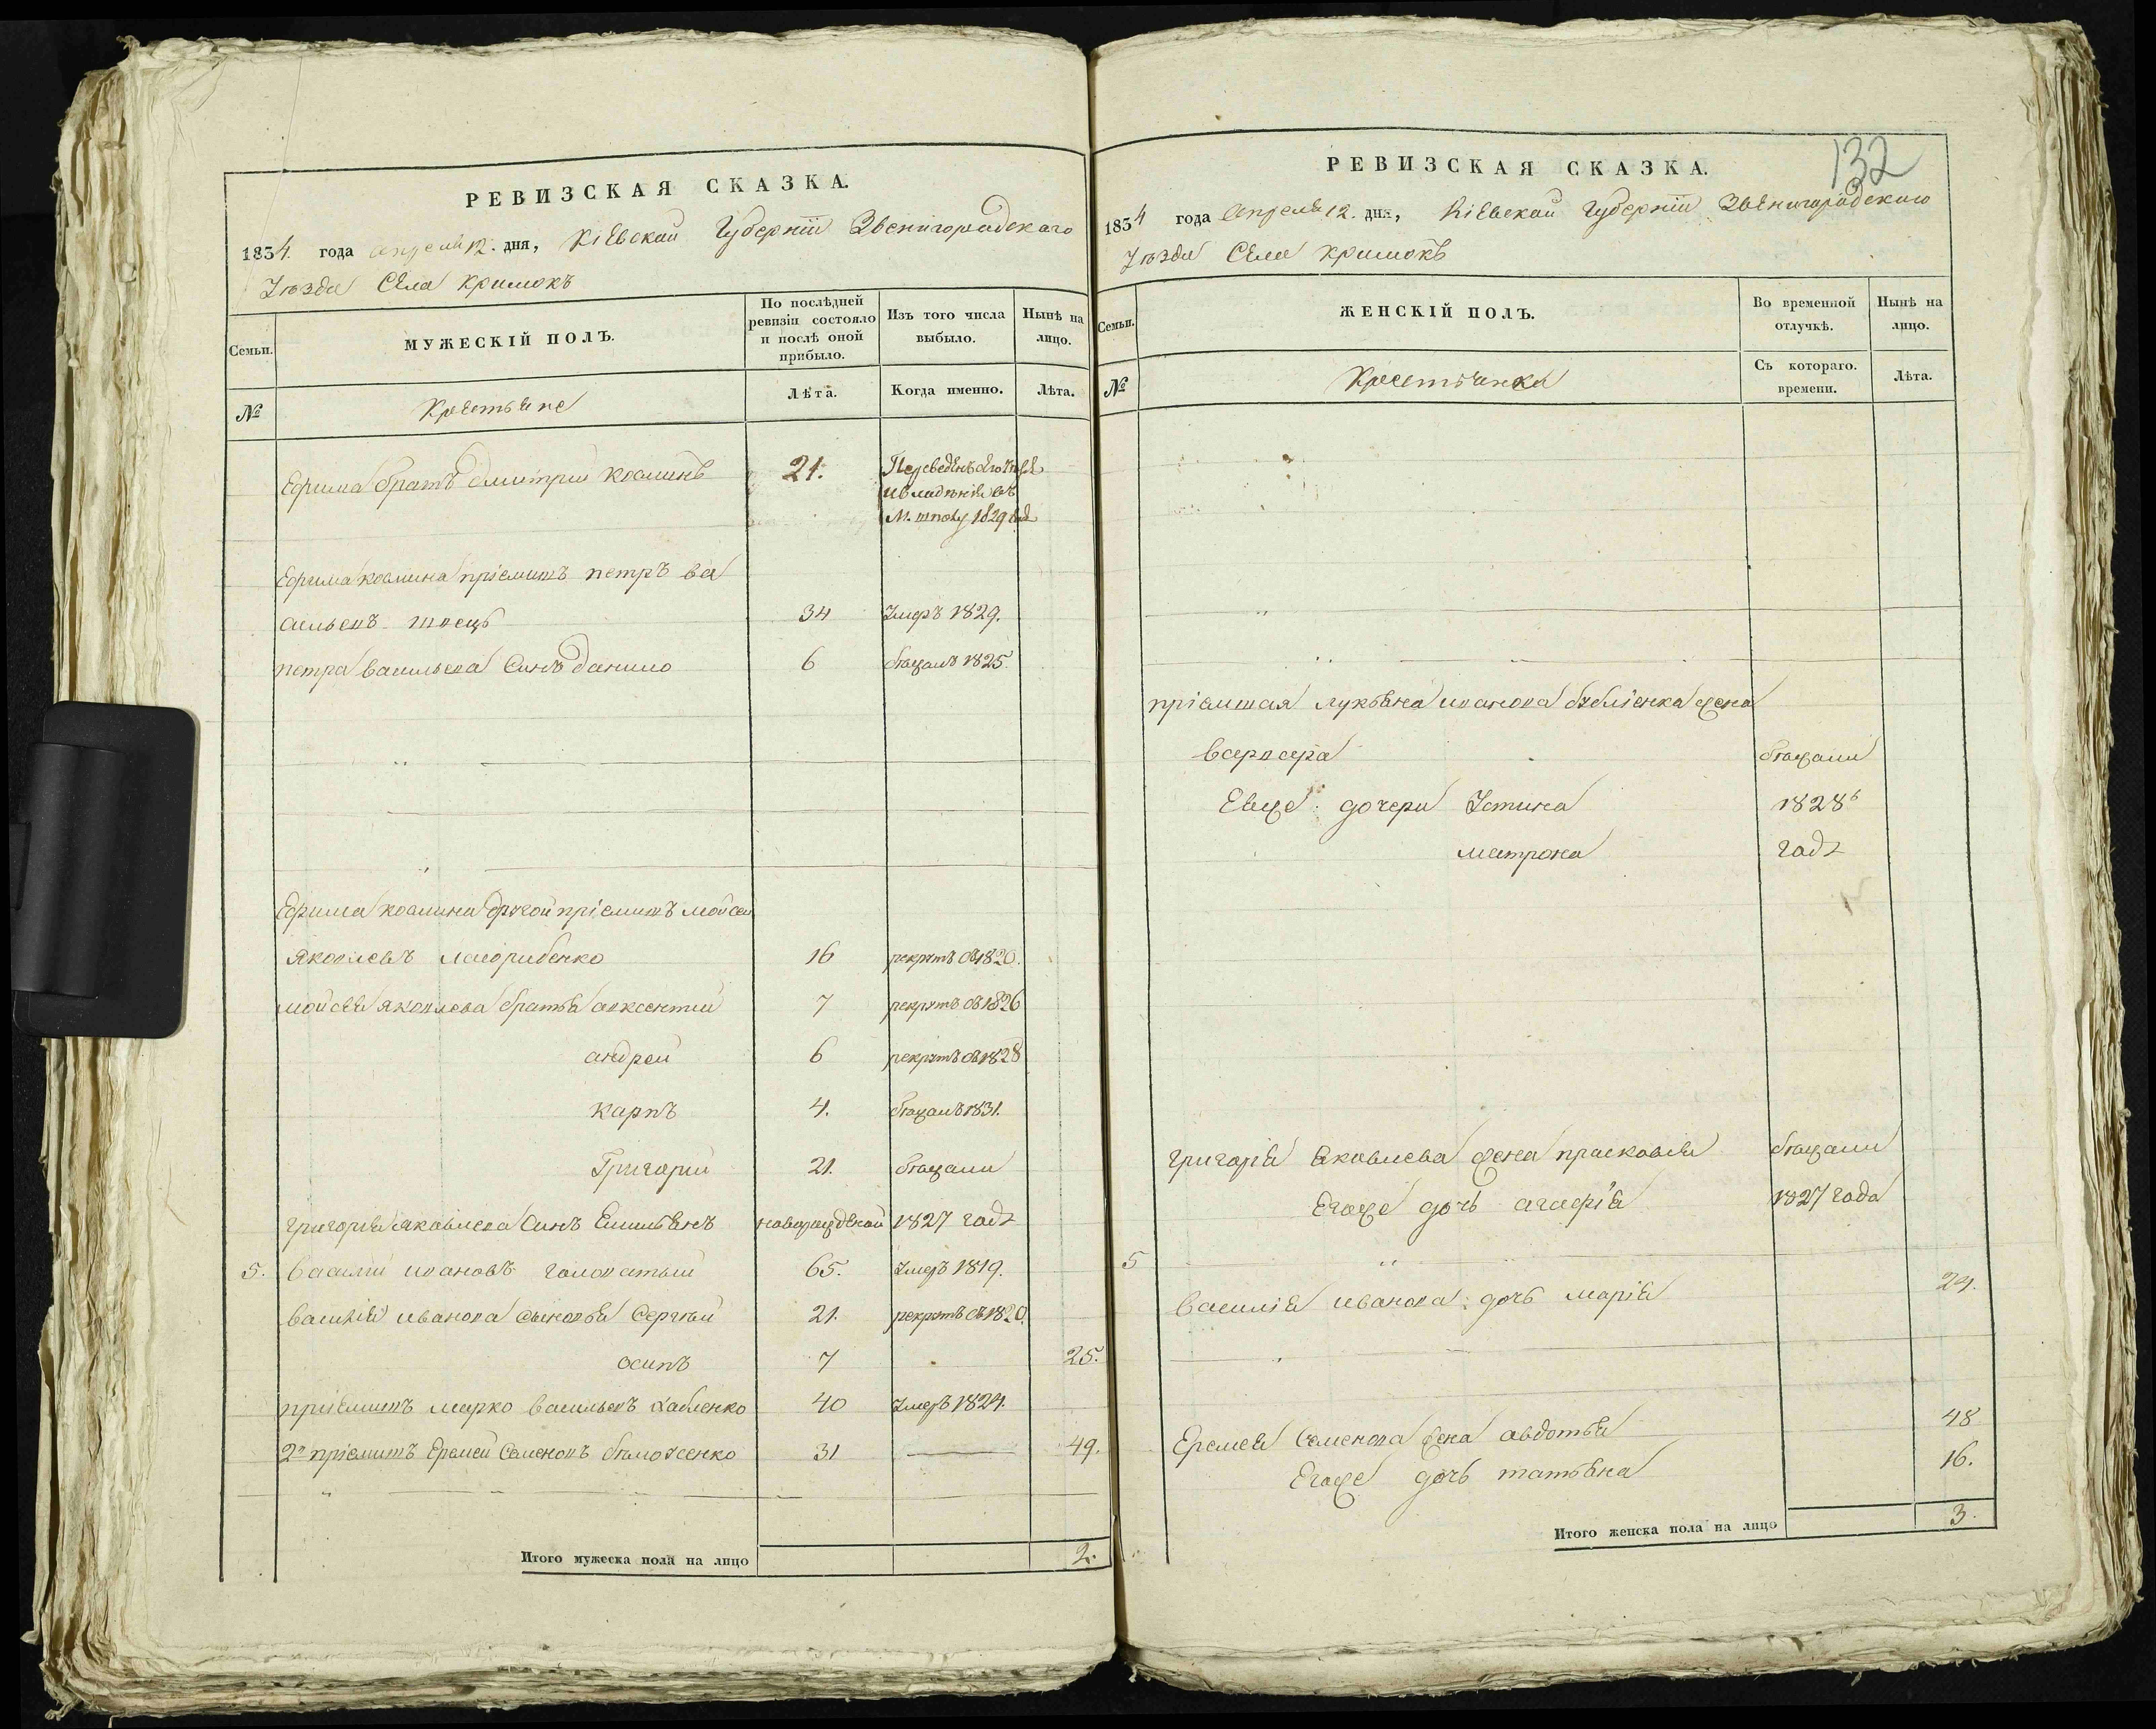 РЕВИЗСКАЯ СКАЗКА.
1834. года апреля 12. дня, Кіевской Губерніи Звенигородскаго
Уѣзда Села Кримокъ
Семьи.
МУЖЕСКІЙ ПОЛЪ.
По послѣдней ревизіи состояло и послѣ оной прибыло.
Изъ того числа выбыло.
Нынѣ на лицо.
№
Крестьяне
Лѣта.
Когда именно.
Лѣта.
Ефима братъ Дмитрий Косминъ 21. Переведенъ
М. 1829
Ефима Космина пріемишъ петръ ва
сильевъ швецъ 34 Умеръ 1829.
петра васильева Синъ данило 6 бѣжалъ 1825.
Ефима космина другой пріемишъ мойсей
яковлевъ 16 рекрутъ съ 1820.
мойсея яковлева братья авксентий 7 рекрутъ съ 1826
андрей 6 рекрутъ съ 1828
карпъ 4. бѣжалъ 1831.
Григорий 21. бѣжали
григорія яковлева Синъ Емильянъ новорожденой 1827 года
5. василий ивановъ головатый 65. Умеръ 1819.
василія иванова сыновья Сергѣй 21. рекрутъ съ 1820.
осипъ 7 25.
пріемишъ марко васильевъ 40 Умеръ 1824.
2й пріемишъ Еремей Семеновъ 31 49.
Итого мужеска пола на лицо 2.
132
РЕВИЗСКАЯ СКАЗКА.
1834 года апреля 12. дня, Кіевской Губерніи Звенигородского
Уѣзда Села Кримокъ
Семьи.
ЖЕНСКІЙ ПОЛЪ.
Во временной отлучкѣ.
Нынѣ на лицо.
№
Крестьянки
Съ котораго. времени.
Лѣта.
пріемшая лукьяна иванова жена
варвара бѣжали
Еяже дочери Устина 1828
матрона года
григорія яковлева жена прасковія бѣжали
Егоже дочь агафія 1827 года
5
василія иванова дочь марія 24.
Еремея Семенова жена авдотья 48
Егоже дочь татьяна 16.
Итого женска пола на лицо 3.